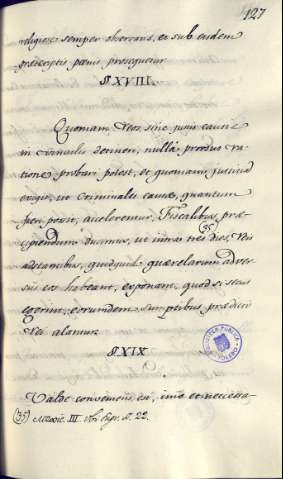 127
religiose semper observans, et sub eisdem
præceptis pœnis prosequetur.
§ XVIII.
Quoniam Reos sine justa causa
in vinculis detineri, nulla prorsus ra-
tione probari potest, et quoniam justitia
exigit, ut criminales causæ, quantum
fieri possit, accelerentur, Fiscalibus præ-
cipiendum ducimus, ut intra tres dies, Reis
adstantibus, quidquid quærelarum adver-
sus eos habeant, exponant, quod si secus
egerint, eorumdem sumptibus prædicti
Rei alantur.
(35)
§ XIX
Valde conveniens est, imo et necessa-
(35) Mexic. III. ubi supr. §. 22.